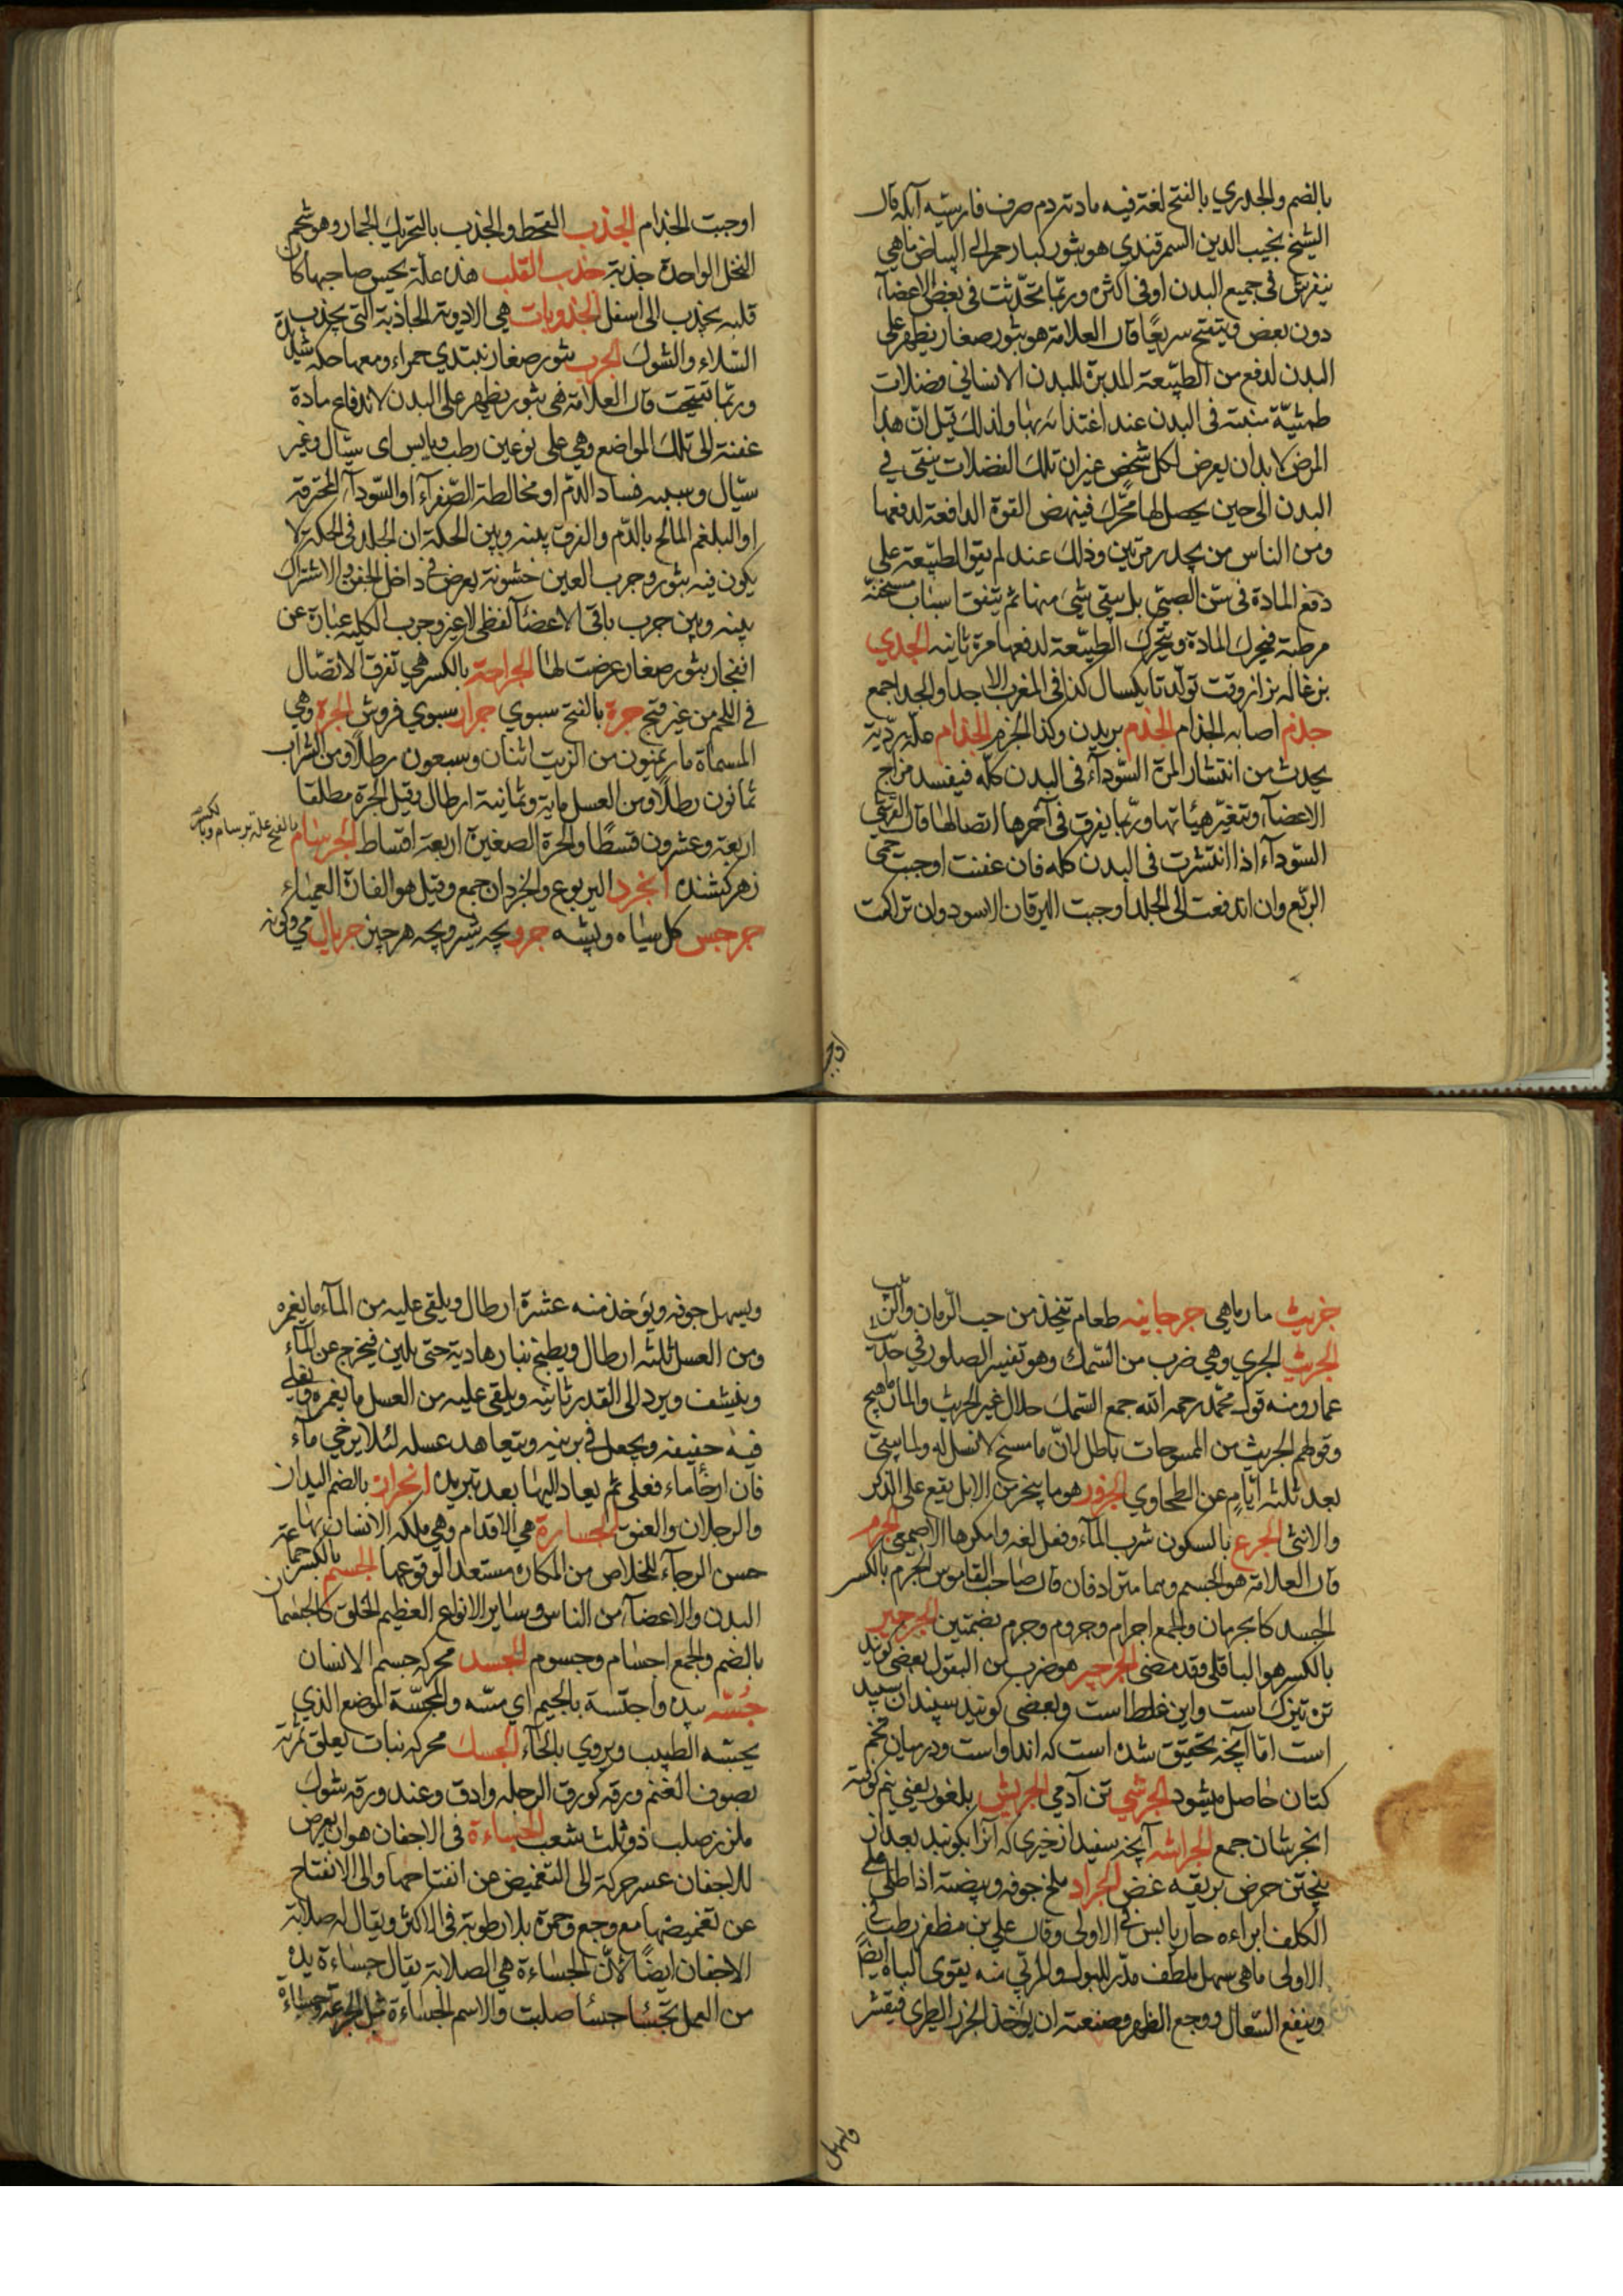 بالضم والجدري بالفتح لغة فيه مادته دم صرف فارسيته آبله قال
الشيخ نجيب الدين السمرقندي هو بثور كبار حمر الى البياض ما هي
يتفرش في جميع البدن او في اكثره وربّما تحدّثت في بعض الاعضآء
دون بعض ويتفتح سريعًا قال العلامة هو بثور صغار يظهر على
البدن لدفع من الطبيعة المدبرة للبدن الانساني فضلات
طمثيّة منبتة في البدن عند اغتذائه بها ولذلك قيل ان هذا
المرض لا بد ان يعرض لكل شخص غير ان تلك الفضلات يبقى في
البدن الى حين يحصل لها محرّك فينهض القوة الدافعة لدفعها
ومن الناس من يجدر مرتين وذلك عند لم يقو الطبيعة على
دفع المادة في سن الصبى بل يبقى شئ منها ثم يتفق اسباب مسخنة
مرطبة فيحرك المادة ويتحرك الطبيعة لدفعها مرة ثانيه الجدي
بزغاله نر از وقت تولد تا يكسال كذا في المغرب الاجد او الجدا جمع
جذم اصابه الجذام الجذم بريدن وكذا الجزم الجذام علة رديّة
يحدث من انتشار المرة السّودآء في البدن كلّه فيفسد مزاج
الاعضآء ويتغيّر هيئاتها وربّما يفرق في آخرها اتصالها قال القرشي
السّودآء اذا انتشرت في البدن كله فان عفنت اوجبت حمى
الربع وان اندفعت الى الجلد اوجبت اليرقان الاسود وان تراكمت
اوجبت
اوجبت الجذام الجذب القحط والجذب بالتحريك الجمار وهو شحم
النخل الواحدة جذبة جذب القلب هذه علّة يحس صاحبها كان
قلبه يجذب الى اسفل الجذوبات هي الادوية الجاذبة التي يجذب
السّلاء والشوك الجرب بثور صغار تبتدي حمراء ومعها حكه شديدة
وربّما تقيحت قال العلامة هي بثور يظهر على البدن لاندفاع مادة
عفنة الى تلك المواضع وهي على نوعين رطب ويابس اى سيّال وغير
سيّال وسببه فساد الدّم او مخالطة الصّفرآء او السّودآء المحترقة
او البلغم المالح بالدّم والفرق بينه وبين الحكة ان الجلد في الحكة لا
يكون فيه بثور وجرب العين خشونة يعرض في داخل الجفن والاشتراك
بينه وبين جرب باقي الاعضآء لفظى لا غير وجرب الكلية عبارة عن
انفجار بثور صغار عرضت لها الجراحة بالكسر هي تفرق الاتّصال
في اللحم من غير قيح جرة بالفتح سبوى جرار سبوى فروش الجرة وهي
المسماة ماريمنيون من الزيت اثنان وسبعون رطلًا ومن الشراب
ثمانون رطلًا ومن العسل ماية وثمانية ارطال وقيل الجرة مطلقا
اربعة وعشرون قسطًا والجرة الصغيرة اربعة اقساط الجرسام بالفتح علة برسام وبالكسر
زهر كشنده الجرذ اليربوع والجرذان جمع وقيل هو الفارة العمياء
جرجس كل سياه وپشه جرو بچه شير وبچه هر چيز جريال مى وكونه
جريث مارماهى جرجانيه طعام يتخذ من حب الرّمان والزبيب
الجريث الجري وهي ضرب من السّمك وهو تفسير الصلور في حديث
عمار ومنه قول محمّد رحمه الله جمع السّمك حلال غير الجريث والمارماهيج
وقولهم الجريث من الممسوخات باطل لانّ ما مسخ لا نسل له ولما يبقى
بعد ثلثة ايام عن الطحاوي الجزور هو ما ينحر من الابل يقع على الذكر
والانثى الجرع بالسكون شرب المآء وفعل لغة وانكرها الاصمعى الجرم
قال العلامة هو الجسم وهما مترادفان قال صاحب القاموس الجرم بالكسر
الجسد كالجرمان والجمع اجرام وجروم وجرم بضمتين الجرجير
بالكسر هو الباقلى وقد مضى الجرجير هو ضرب من البقول بعضى كويند
تره تيزك است واين غلط است وبعضى كويند سپندان سپيد
است امّا آنچه تحقيق شده است كه انداو است ودر ميان تخم
كتان حاصل ميشود الجرشى تن آدمي الجريش بلغور يعني نيم كوفته
انجرشان جمع الجراشه آنچه سفيد از چيزى كه آنرا بكوبند بعد از
پختن حرض بريقه غض الجراد ملخ جوفه وبيضته اذا طلى على
الكلف ابراءه حار يابس في الاولى وقال علي بن مظفر رطب في
الاولى ما هى سهل ملطف مدّر للبول والمربّى منه يقوى الباه ايضًا
وينفع السّعال ووجع الظهر وصنعته ان يؤخذ الجزر الطرى فيقشر
ويسهل
ويسهل جوفه ويؤخذ منه عشرة ارطال ويلقى عليه من المآء ما يغمره
ومن العسل ثلثه ارطال ويطبخ بنار هادية حتى يلين فيخرج عن المآء
وينشف ويرد الى القدر ثانيه ويلقى عليه من العسل ما يغمره ويغلى
فيه خفيفه ويجعل في برنية ويتعاهد عسله لئلا يرخى مآء
فان ارخا ماء فعلى ثم يعاد اليها بعد تبريده الجزارة بالضم اليدان
والرجلان والعنق الجسارة هي الاقدام وهي ملكه الانسان بها
حسن الرجآء للخلاص من المكاره مستعد الوقوعها الجسم بالكسر جماعة
البدن والاعضآء من الناس وساير الانواع العظيم الخلق كالجسمان
بالضم والجمع اجسام وجسوم الجسد محركه جسم الانسان
جسّه بيده واجتسه بالجيم اي مسّه والمجسّة الموضع الذي
يجسّه الطبيب ويروي بالحآء الحسك محركه نبات يعلق ثمرته
بصوف الغنم ورقه كورق الرجله وادق وعند ورقه شوك
ملزز صلب ذو ثلث شعب الجساءة في الاجفان هو ان يعرض
للاجفان عسر حركة الى التغميض عن انفتاحها والى الانفتاح
عن تغميضها مع وجع وحمرة بلا رطوبة في الاكثر ويقال له صلابة
الاجفان ايضًا لانّ الجساءة هي الصلابة يقال جساءة يده
من العمل تجسأ جسأ صلبت والاسم الجساءة مثل الجرعة